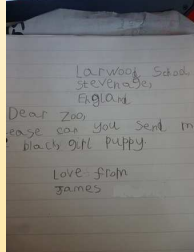 Larwood School
Stevenage,
England
Dear Zoo,
ease can you send m
black girl puppy.
Love from
James